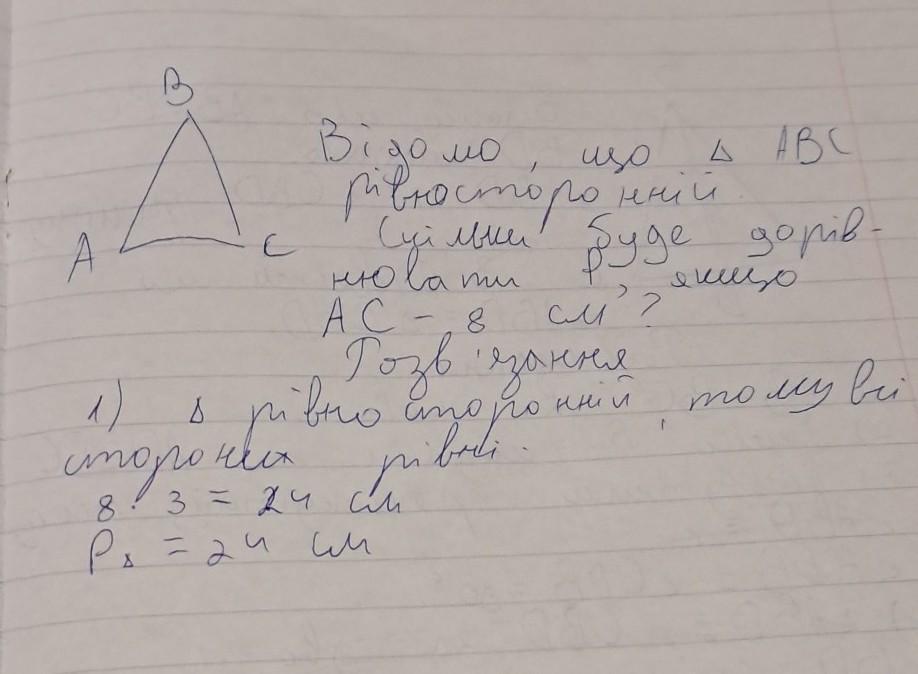 B
A
C
Відомо, що Δ ABC
рівносторонній.
Скільки буде дорів-
нювати P, якщо
AC - 8 см?
Розв'язання
1) Δ рівносторонній, тому всі
сторони рівні.
8 · 3 = 24 см
PΔ = 24 см